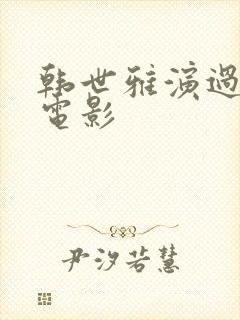 韩世雅演過
電影
尹汐若慧